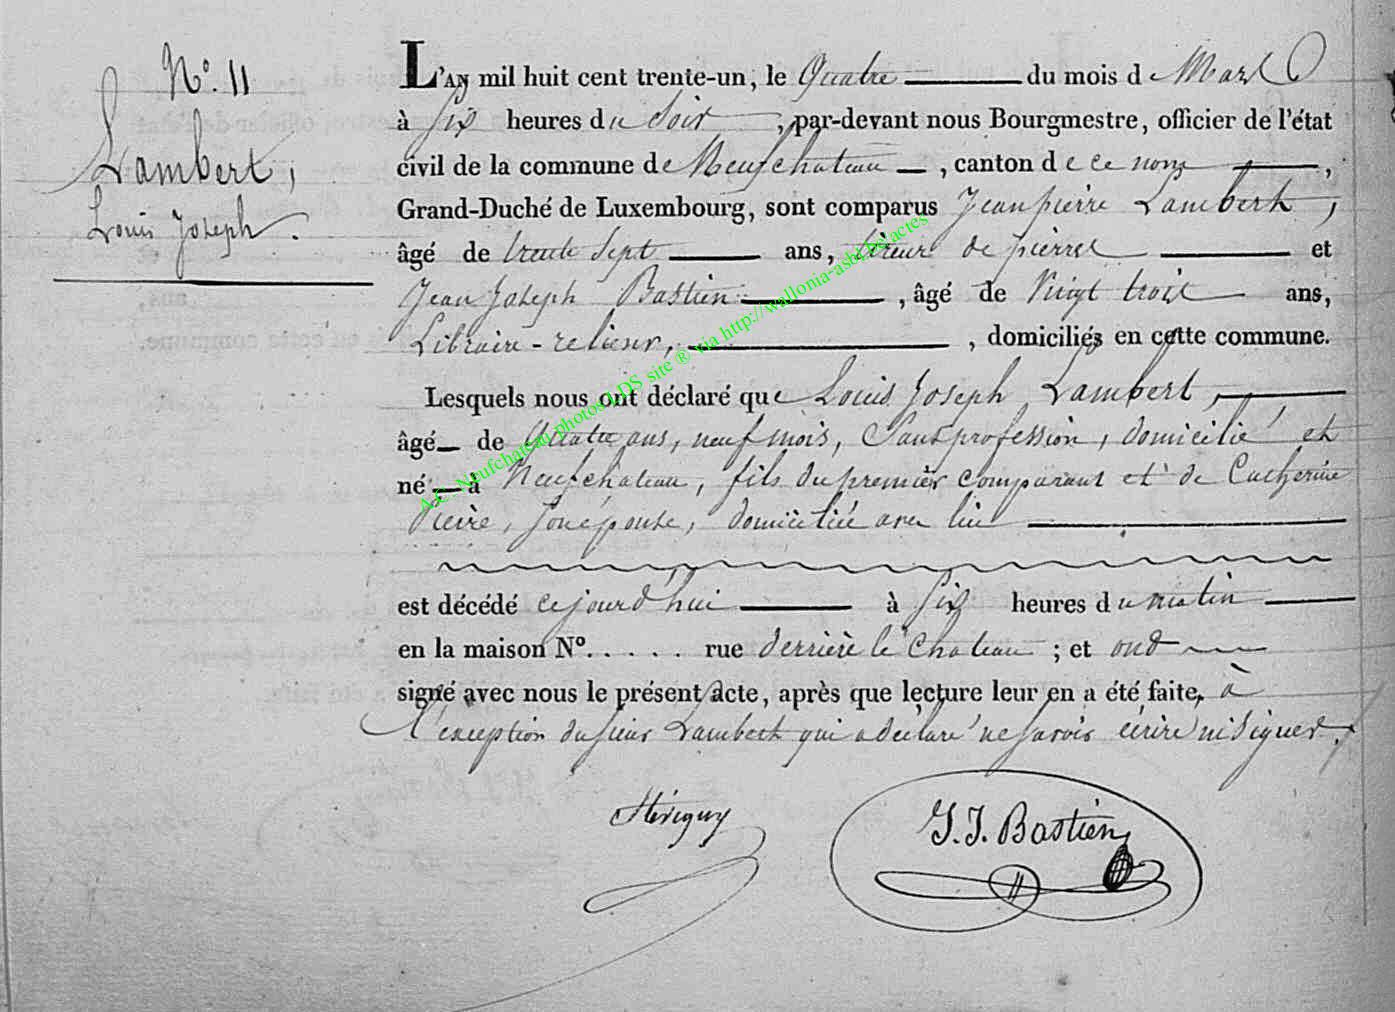 N.° 11
Lambert,
Louis Joseph.
L'AN mil huit cent trente-un, le Quatre du mois de Mars
à six heures du soir, par-devant nous Bourgmestre, officier de l'état
civil de la commune de Neufchateau, canton de ce nom,
Grand-Duché de Luxembourg, sont comparus Jean pierre Lambert,
âgé de trente sept ans, tireur de pierres et
Jean Joseph Bastien, âgé de Vingt trois ans,
Libraire-relieur, domiciliés en cette commune.
Lesquels nous ont déclaré que Louis Joseph Lambert,
âgé de quatre ans, neuf mois, Sans profession, domicilié et
né à Neufchateau, fils du premier comparant et de Catherine
son épouse, domiciliée avec lui
est décédé cejourd'hui à six heures du matin
en la maison N°..... rue derrière le Chateau; et ont
signé avec nous le présent acte, après que lecture leur en a été faite, à
l'exception du sieur Lambert qui a déclaré ne savoir écrire ni signer.
J.J. Bastien
A.E. Neufchateau photos LDS site ® via http://wallonia-asbl.be/actes